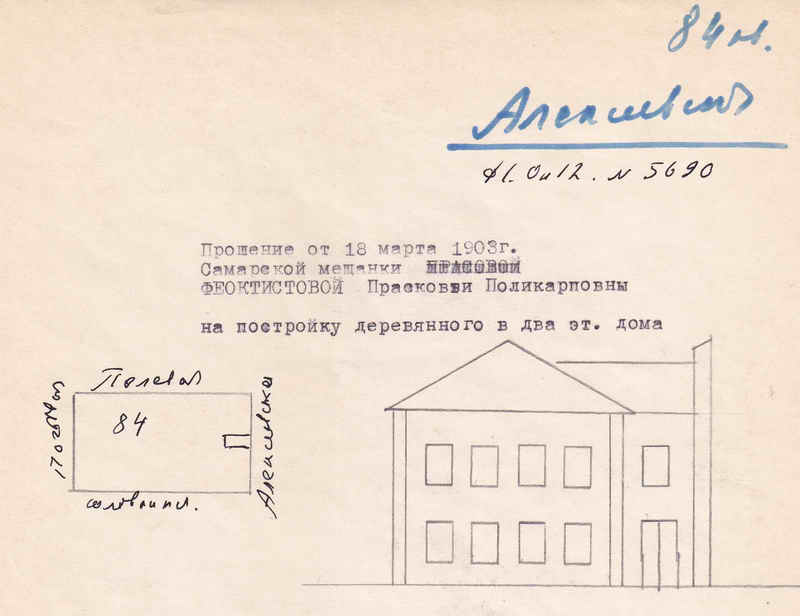 84 кв.
Алексеевская
ф1. Оп12. N 5690
Прошение от 18 марта 1903г.
Самарской мещанки
ФЕОКТИСТОВОЙ Прасковьи Поликарповны
на постройку деревянного в два эт. дома
Полевая
84